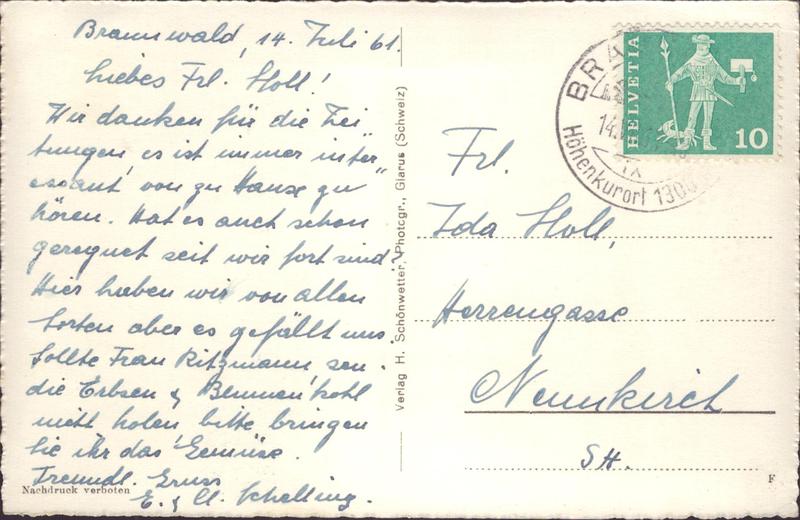 Braunwald, 14. Juli 61.
Liebes Frl. Stoll!
Wir danken für die Zei-
tungen, es ist immer inter-
essant, von zu Hause zu
hören. Hat es auch schon
geregnet seit wir fort sind?
Hier haben wir von allen
Sorten aber es gefällt uns.
Sollte Frau Ritzmann sen.
die Erbsen & Blumenkohl
nicht holen bitte bringen
Sie ihr das Gemüse.
Freundl. Gruss
E. & A. Schelling.
Nachdruck verboten
Verlag H. Schönwetter, Photogr., Glarus (Schweiz)
HELVETIA
10
BRA
14.
IX
Höhenkurort 1300
Frl.
Ida Stoll,
Herrengasse
Neunkirch
SH.
F